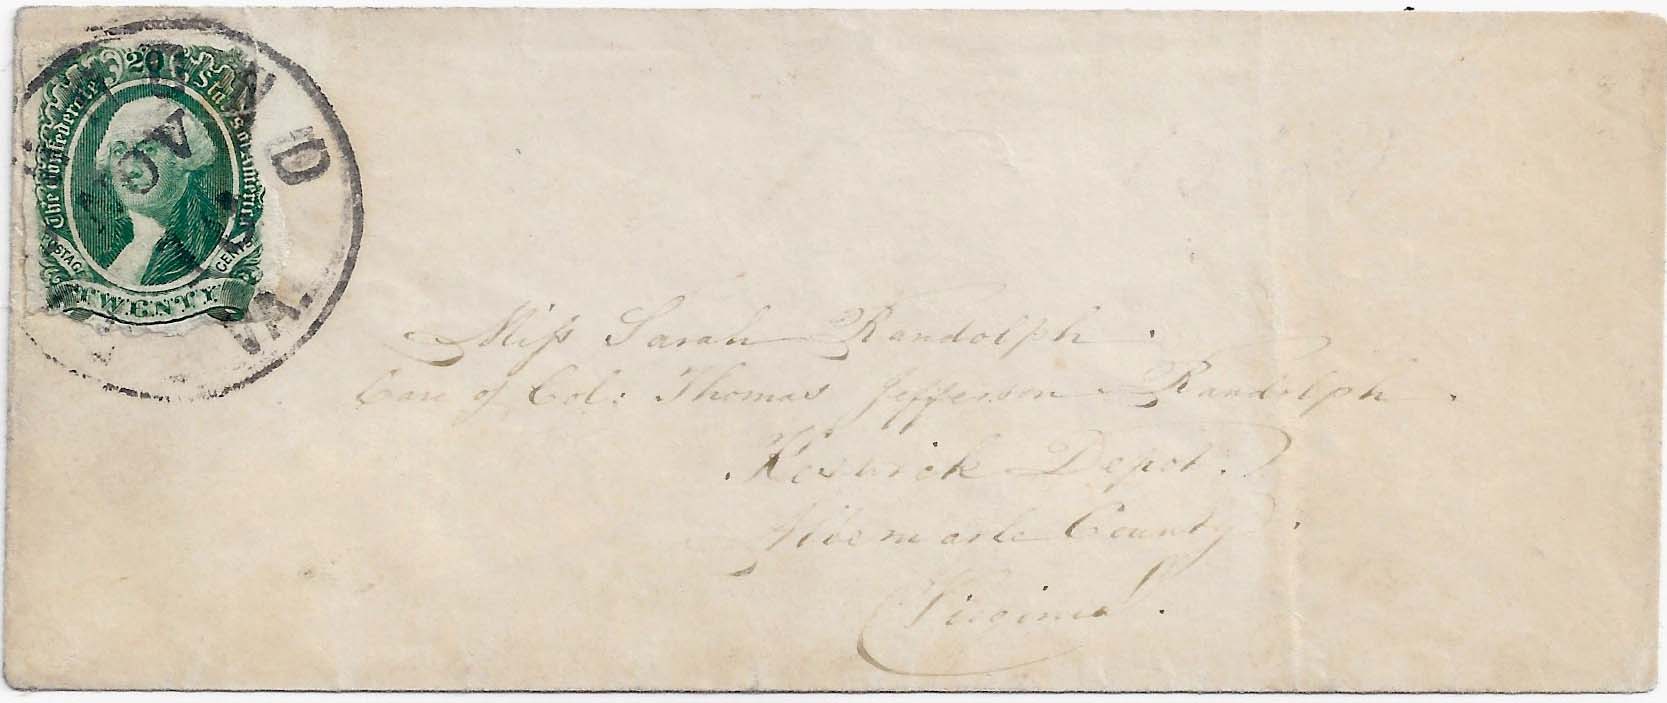 20
The Confederate States of America
POSTAGE CENTS
TWENTY
MOND
NOV
VA.
Miss Sarah Randolph.
Care of Col: Thomas Jefferson Randolph.
Keswick Depot.
Albemarle County.
Virginia.